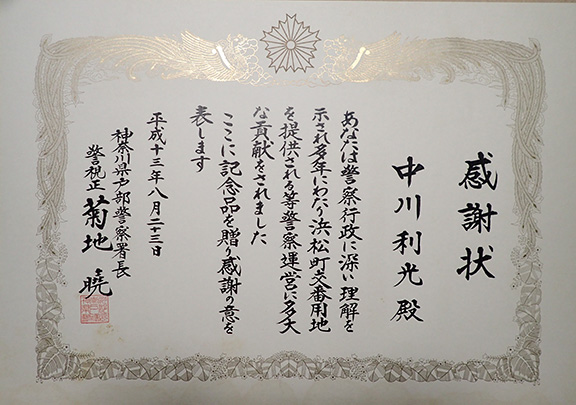 感謝状
中川利光殿
あなたは警察行政に深い理解を
示され多年にわたり浜松町交番用地
を提供される等警察運営に多大
な貢献をされました
ここに記念品を贈り感謝の意を
表します
平成十三年八月二十三日
神奈川県戸部警察署長
警視正 菊地 曉